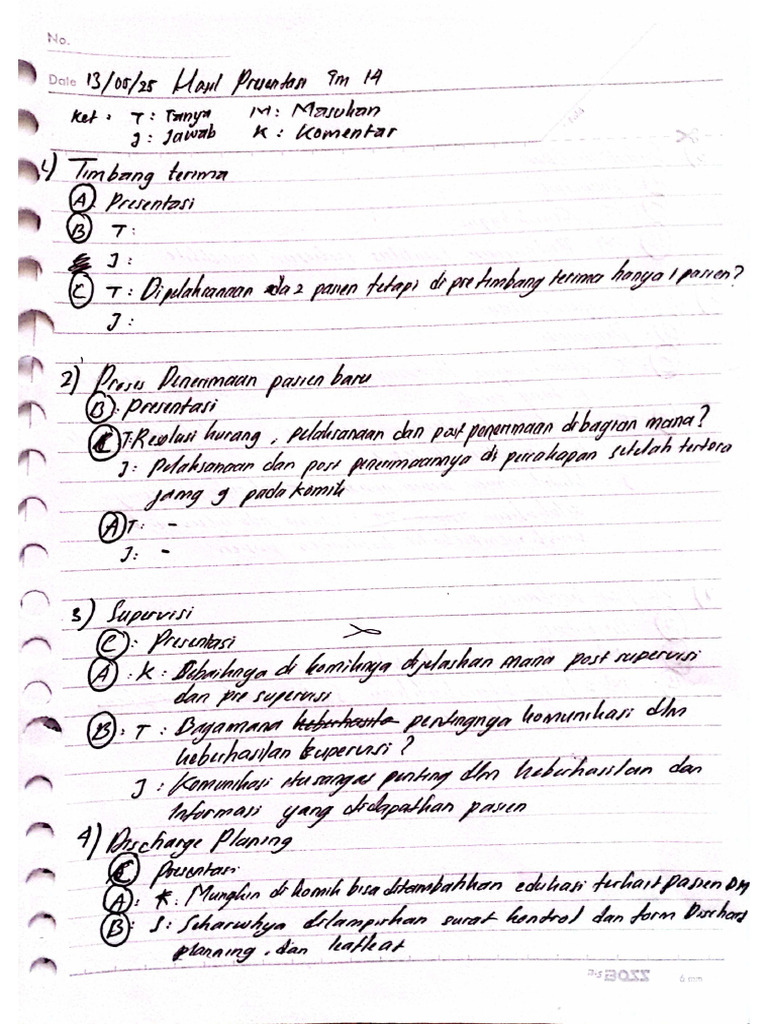 No.
Date 13/05/25 Hasil Presentasi Tm 14
Ket : T : Tanya M : Masukan
J : Jawab K : Komentar
1) Timbang terima
A : Presentasi
B T :
J :
C T : Dipelaksanaan ada 2 pasien tetapi di pre timbang terima hanya 1 pasien?
J :
2) Proses Penerimaan pasien baru
B : Presentasi
C T : Resolusi kurang, pelaksanaan dan post penerimaan dibagian mana?
J : Pelaksanaan dan post penerimaannya di percakapan setelah tertera
jam 9 pada komik
A T : -
J : -
3) Supervisi
C : Presentasi
A : K : Sebaiknya di komiknya dijelaskan mana post supervisi
dan pre supervisi
B : T : Bagamana keberhasila pentingnya komunikasi dlm
keberhasilan supervisi?
J : Komunikasi itu sangat penting dlm keberhasilan dan
Informasi yang didapatkan pasien
4) Discharge Planing
C Presentasi
A : K : Mungkin di komik bisa ditambahkan edukasi terkait pasien DM
B : S : Seharusnya dilampirkan surat kontrol dan form
planning, dan leafleat
B5 BOZZ 6 mm